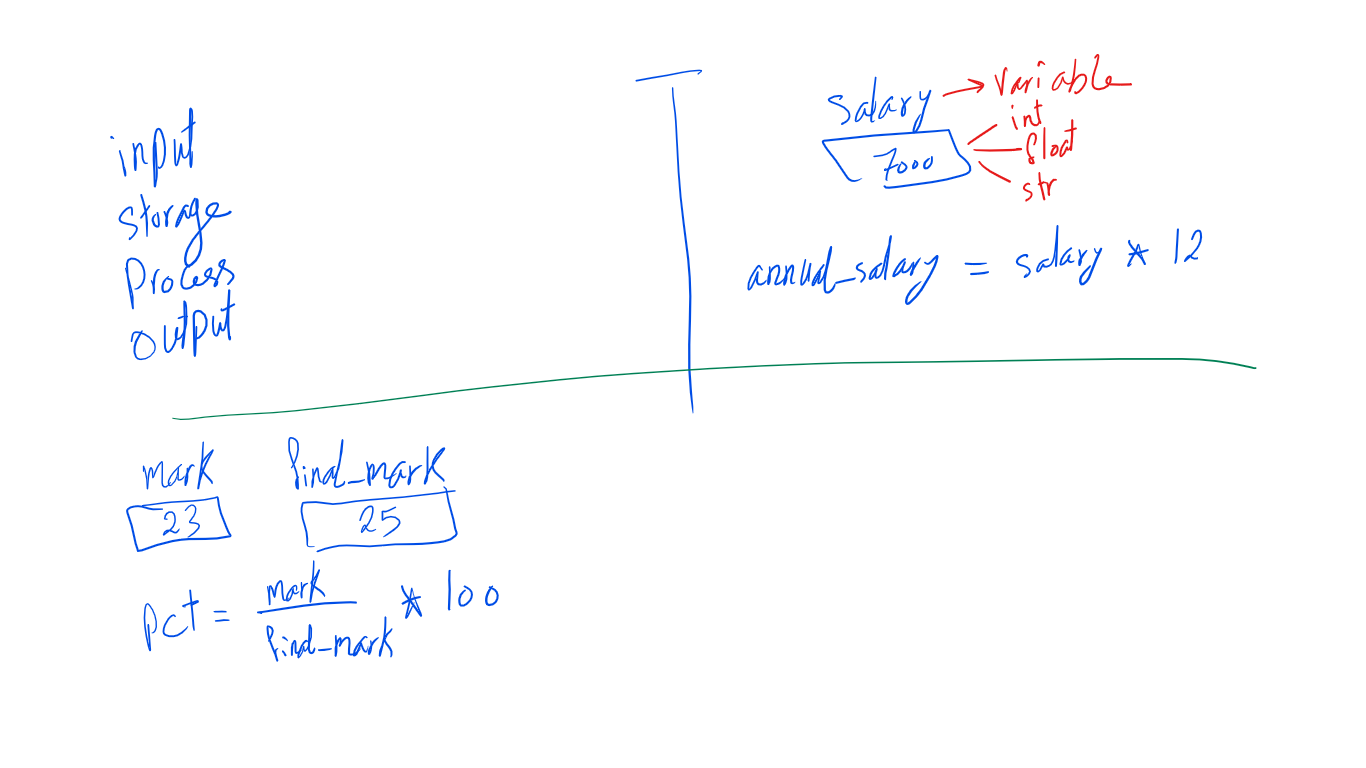 input
storage
Process
output
salary → variable
7000
int
float
str
annual_salary = salary * 12
mark final_mark
23 25
pct = mark / final_mark * 100